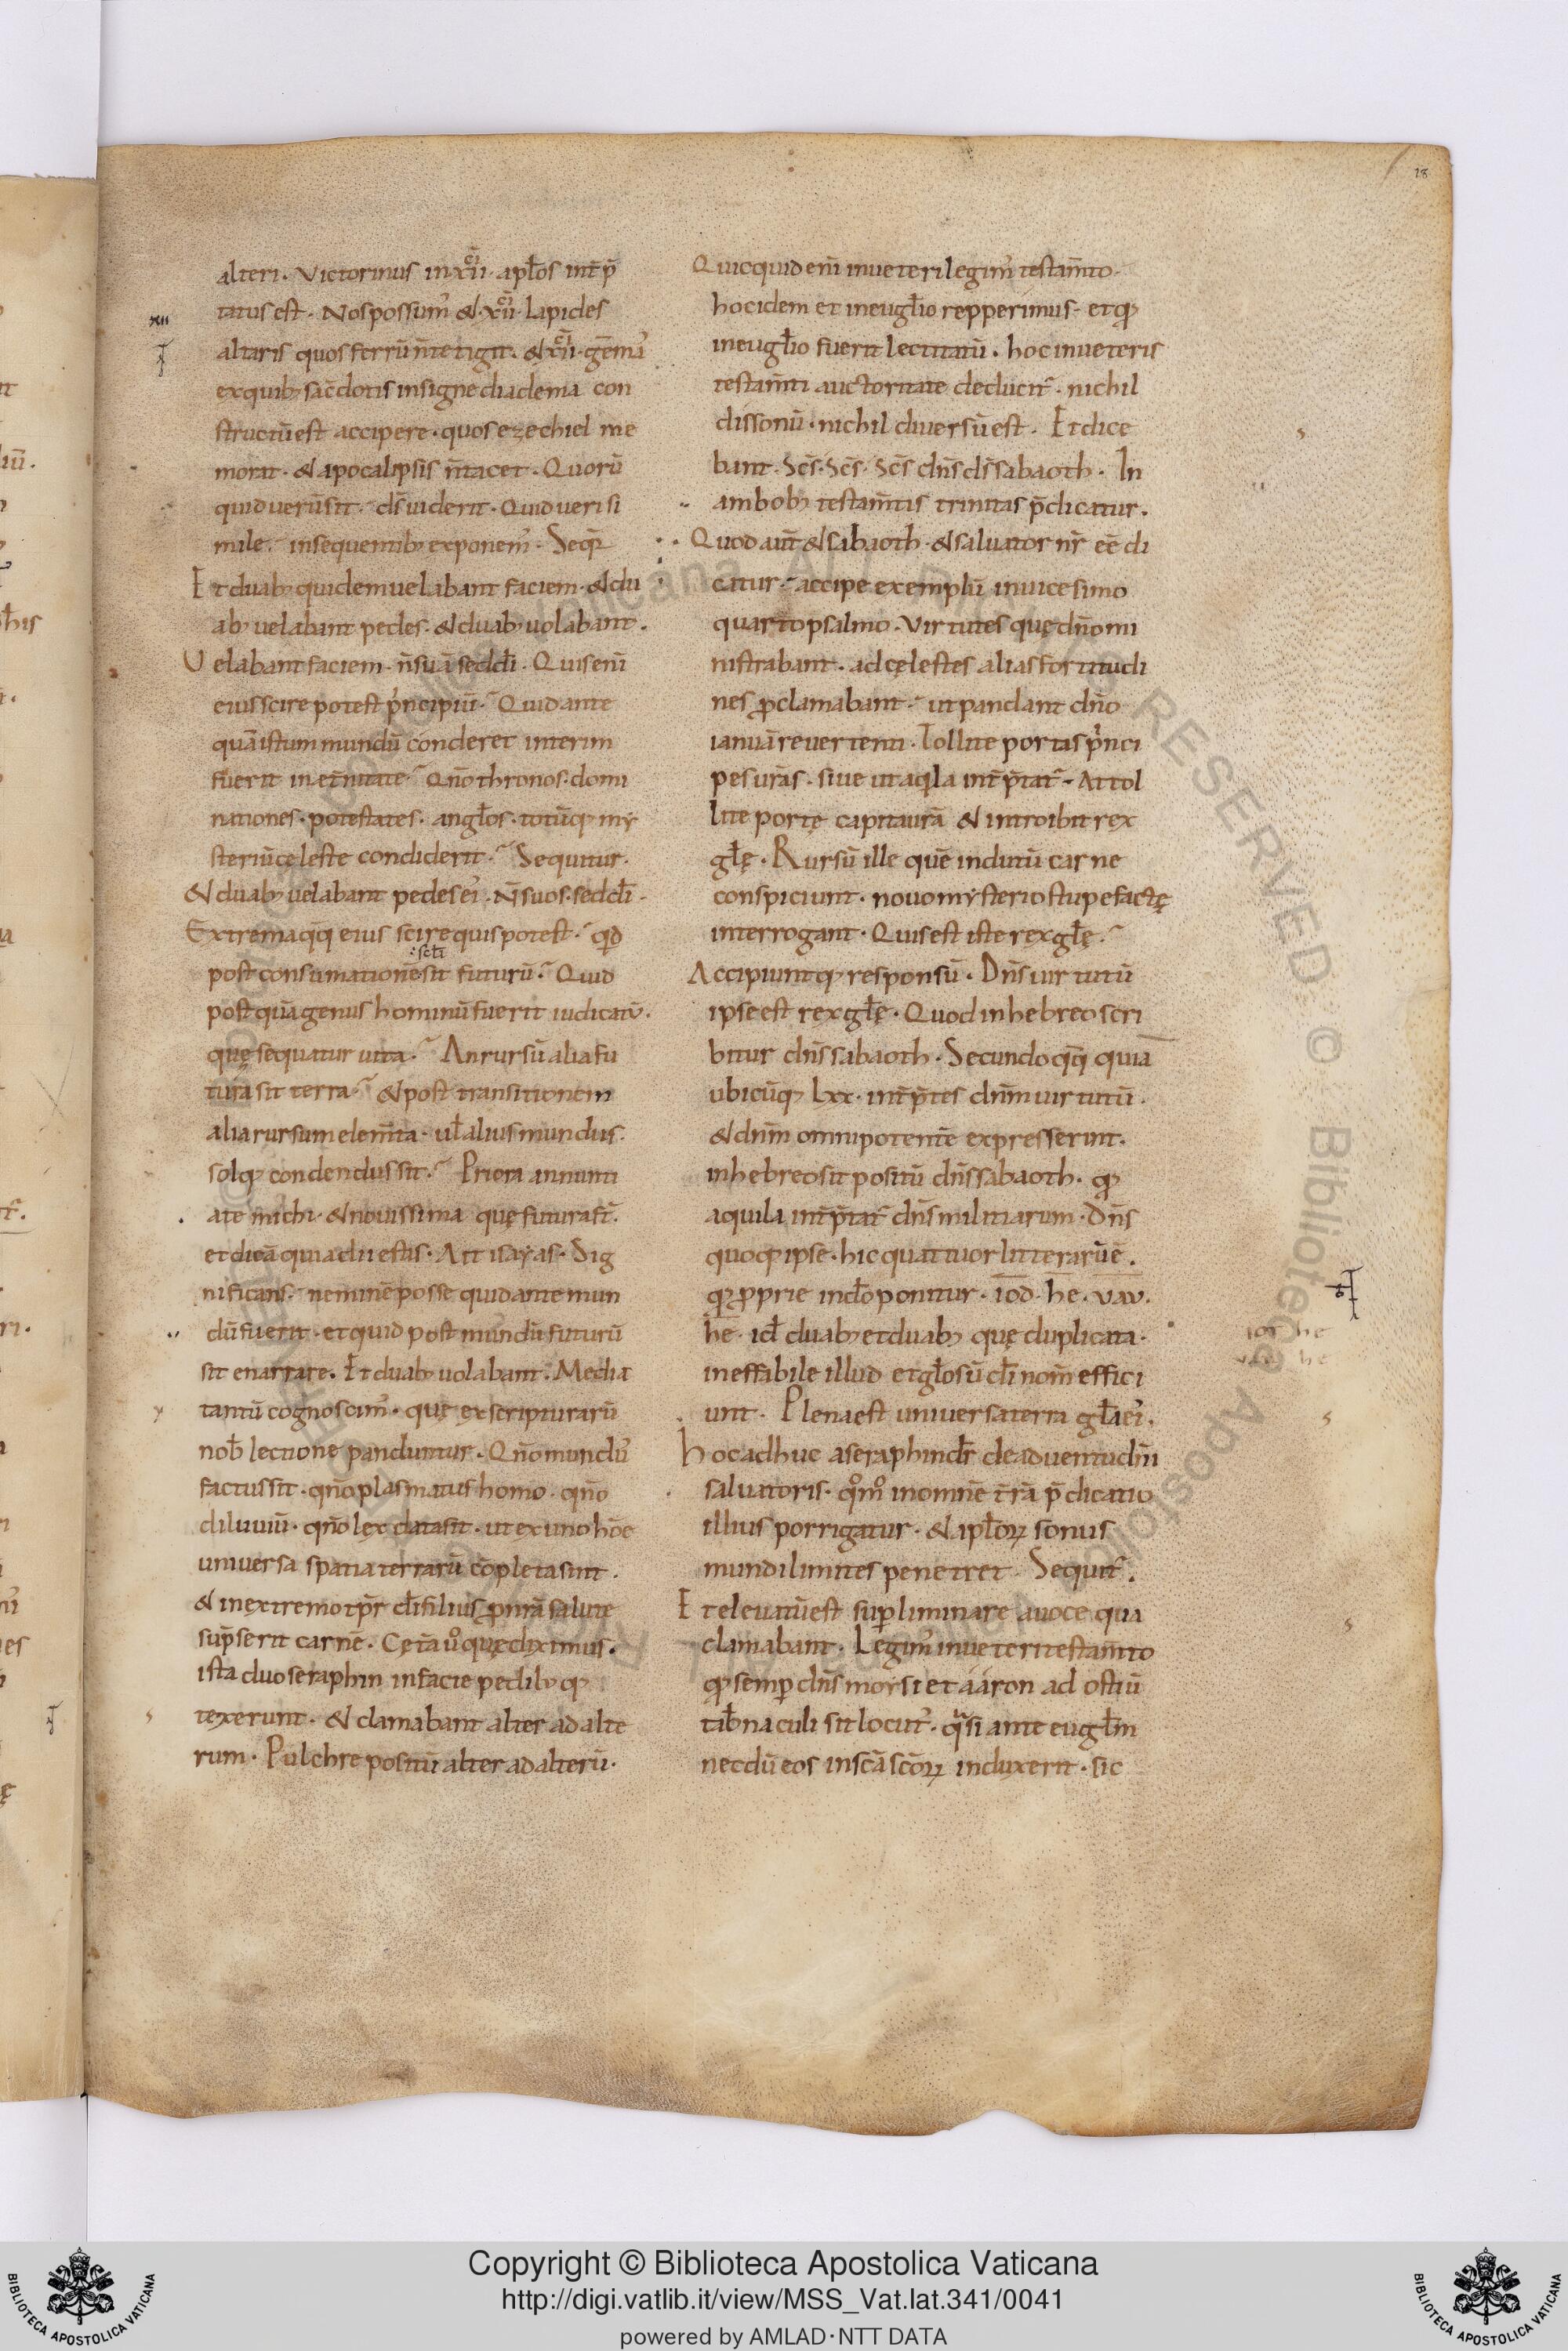 18
alteri. Victorinus in xii. apłos int̄p̄
tatus est. Nos possum᾽ & xii. lapides
xii
altaris quos ferrū n̄ tetigit. & xii. gēma᾽
ex quib; sac̄dotis insigne diadema con
structū est accipere. quos ezechiel me
morat. & apocalipsis n̄ tacet. Quorū
quid verū sit. d̄s viderit. Quid veri si
mile. in sequentib; exponem᾽. Seq̄r̄
Et duab; quidem velabant faciem. & du
ab; velabant pedes. & duab; volabant.
Velabant faciem. n̄ suā sed dī. Quis enī
eius scire potest p̄ncipiū. Quid ante
quā istum mundū conderet interim
fuerit in et̄nitate. Qn̄o thronos. domi
nationes. potestates. angłos. totūq; my
steriū cęleste condiderit. Sequitur.
& duab; velabant pedes ei᾽. N̄ suos. sed dī.
Extrema q̄q; eius scire quis potest. q̄d
post consūmationē scłi sit futurū. Quid
post quā genus hominū fuerit iudicatū.
quę sequatur vita. An rursū alia fu
tura sit terra. & post transitionem
alia rursum elem̄ta. vł alius mundus.
solq; condendus sit. Priora annunti
ate michi. & novissima quę futura st̄.
et dicā quia dii estis. Ait isayas. Sig
nificans. neminē posse quid ante mun
dū fuerit. et quid post mundū futurū
sit enarrare. Et duab; volabant. Media
tantū cognoscim᾽. quę ex scripturarū
nob̄ lectione panduntur. Qn̄o mundu᾽
factus sit. qn̄o plasmatus homo. qn̄o
diluviū. qn̄o lex data sit. ut ex uno hōe
universa spatia terrarū cōpleta sint.
& in extremo tp̄r dī filius p nrā salute
sūpserit carnē. Cęt̄a v̊ quę diximus.
ista duo seraphin in facie pedib; q;
texerunt. & clamabant alter ad alte
rum. Pulchre positū alter ad alterū.
Quicquid enī in veteri legim᾽ testam̄to.
hoc idem et in eugłio repperimus. et q;
in eugłio fuerit lectitatū. hoc in veteris
testam̄ti auctoritate deducit᾽. nichil
dissonū. nichil diversū est. Et dice
bant. Sc̄s. Sc̄s. Sc̄s dn̄s d̄s sabaoth. In
ambob; testam̄tis trinitas p̄dicatur.
Quod aut̄ & sabaoth. & salvator nr̄ eē di
catur. accipe exemplū in vicesimo
quarto psalmo. Virtutes quę dn̄o mi
nistrabant. ad cęlestes alias fortitudi
nes pclamabant. ut pandant dn̄o
ianuā revertenti. Tollite portas p̄nci
pes vrās. sive ut aq̇la int̄p̄tat᾽. Attol
lite portę capita vrā & introibit rex
głę. Rursū ille quē indutū carne
conspiciunt. novo mysterio stupefactę
interrogant. Quis est iste rex głę.
Accipiuntq; responsū. Dn̄s virtutū
ipse est rex głę. Quod in hebreo scri
bitur dn̄s sabaoth. Secundo q̄q; quia
ubicūq; lxx. int̄p̄tes dn̄m virtutū.
& dn̄m omnipotentē expresserint.
in hebreo sit positū dn̄s sabaoth. q;
aquila int̄p̄tat᾽ dn̄s militiarum. Dn̄s
quoq; ipse. hic quattuor litterarū ē.
q; pprie in dō ponitur. iod. he. vav.
he. id̄ duab; et duab; quę duplicata.
ineffabile illud et głosū dī nom̄ effici
unt. Plena est universa terra gła ei᾽.
Hoc adhuc a seraphin dr̄ de adventu dn̄i
salvatoris. qm̊o in omnē t̄rā p̄dicatio
illius porrigatur. & apłoꝝ sonus
mundi limites penetret. Sequit᾽.
Et elevatū est supliminare a voce qua
clamabant. Legim᾽ in veteri testam̄to
q; semp dn̄s moysi et aaron ad ostiū
tab̄naculi sit locut᾽. q̄si ante eugłm
necdū eos in scā scōꝝ induxerit. sic
Copyright © Biblioteca Apostolica Vaticana
http://digi.vatlib.it/view/MSS_Vat.lat.341/0041
powered by AMLAD·NTT DATA
BIBLIOTECA APOSTOLICA VATICANA
BIBLIOTECA APOSTOLICA VATICANA